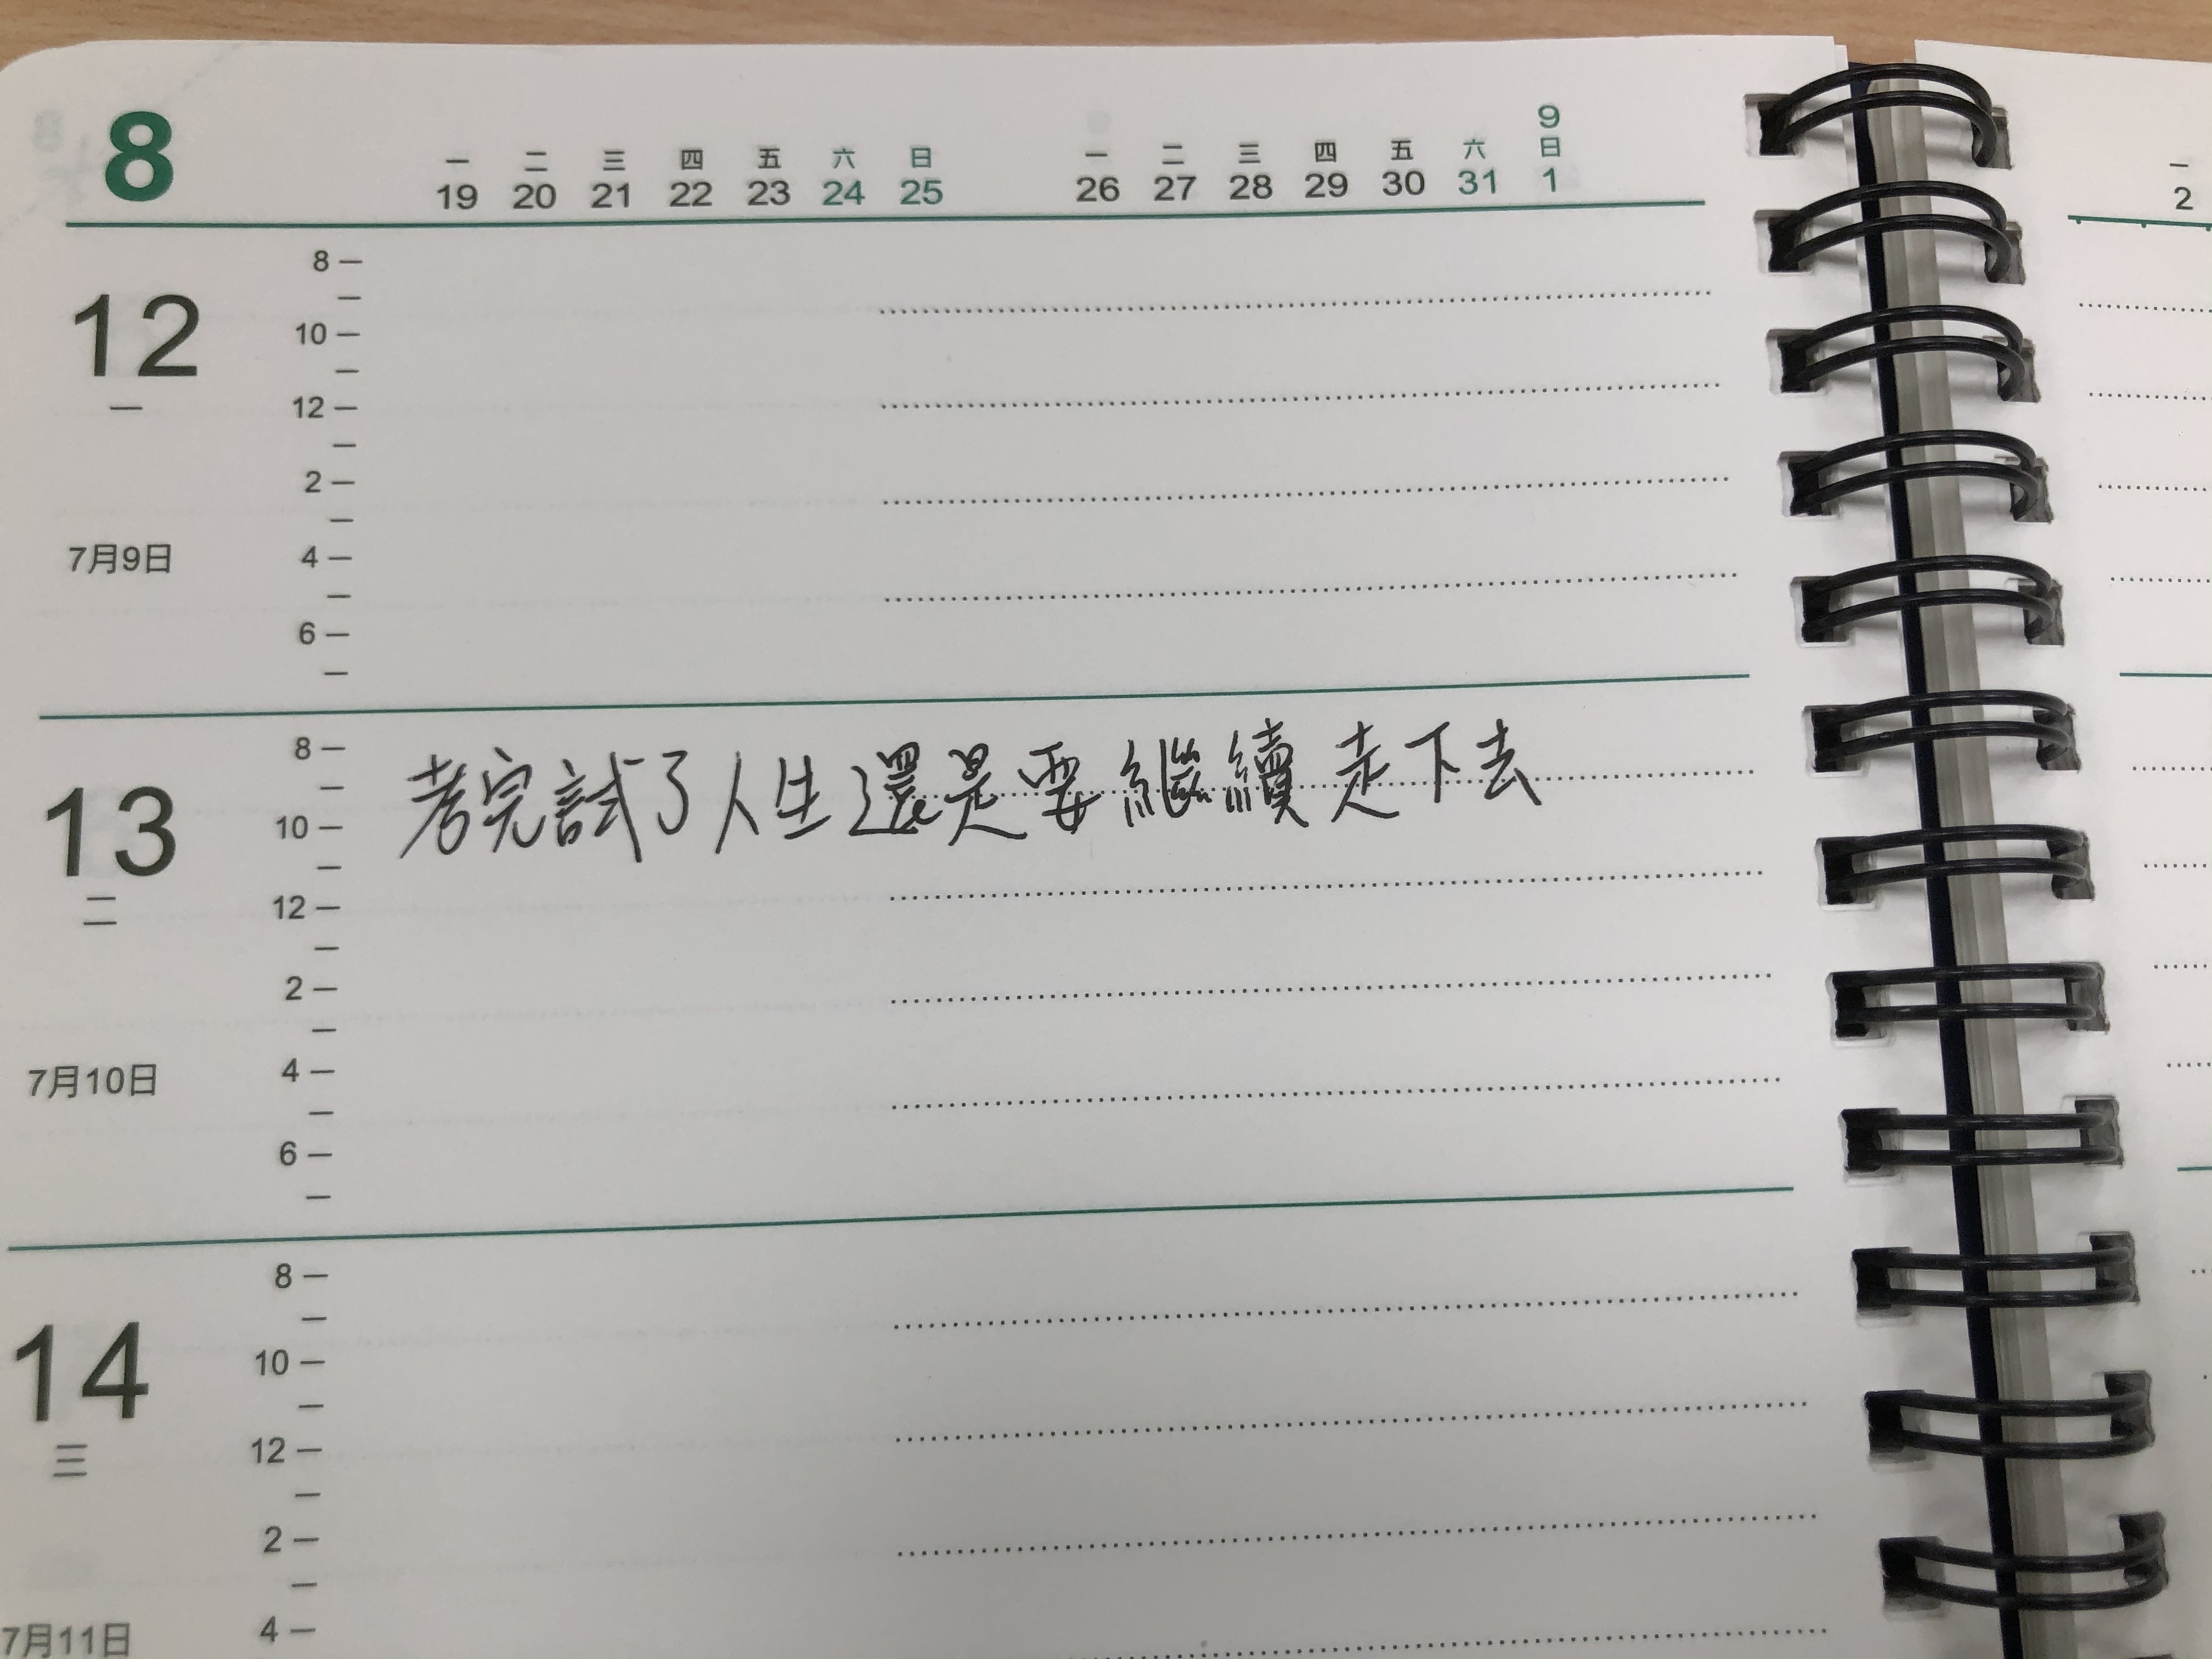 8
一 二 三 四 五 六 日 一 二 三 四 五 六 9 日
19 20 21 22 23 24 25 26 27 28 29 30 31 1
12
一
7月9日
8
10
12
2
4
6
13
二
7月10日
8
考完試了人生還是要繼續走下去
10
12
2
4
6
14
三
7月11日
8
10
12
2
4
一
2